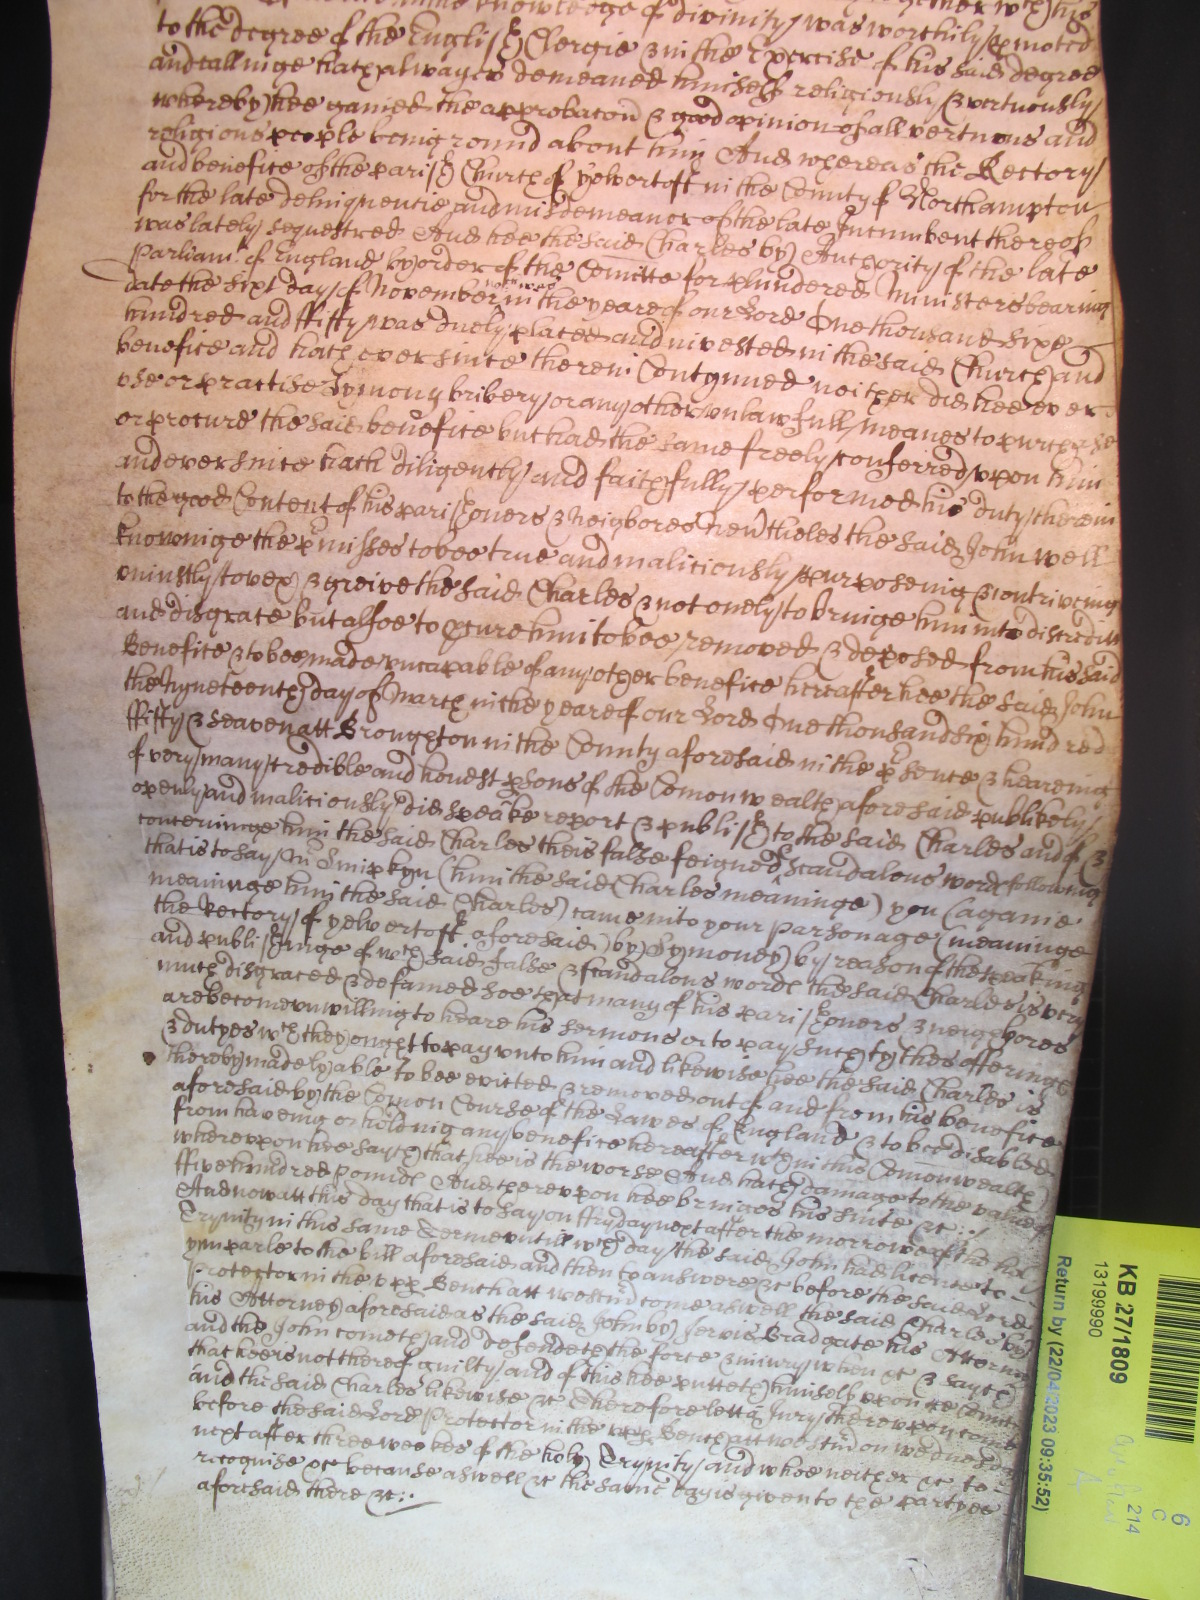 knowledge of divinity was worthily pmoted
to the degree of the English Clergie & in the Exercise of his said degree
and callinge hath alwayes demeaned himself religiously & vertuously
whereby hee gained the approbacon & good opinion of all vertuous and
religious people being round about him And whereas the Rectory
and benefice of the parish Church of yelvertoft in the County of Northampton
for the late delinquencie and misdemeanor of the late Incumbent thereof
was lately sequestred And hee the said Charles by Authority of the late
Parliam t of England by order of the Comitte for plundered Ministers bearing
date the sixt day of November in the yeare of our Lord One thousand sixe
hundred and ffifty was duely placed and invested in the said Church and
benefice and hath ever since therein Contynued neither did hee ever
use or practise Symony bribery or any other unlawfull meanes to purchase
or procure the said benefice but had the same freely conferred upon him
and ever since hath diligently and faithfully performed his duty therein
to the good Content of his parishoners & neigbores nevtheles the said John well
knowinge the pmisses to bee true and maliciously purposeing & contriveing
uniustly to vex & greive the said Charles & not onely to bringe him into discreditt
and disgrace but alsoe to pcure him to bee removed & deposed from his said
Benefice & to bee made uncapable of any other benefice hereafter hee the said John
the Nyneteenth day of March in the yeare of our Lord One thousand six hundred
ffifty & seaven att Broughton in the County aforesaid in the psence & heareing
of very many credible and honest psons of the Comonwealth aforesaid publikely
openly and maliciously did speake report & publish to the said Charles and of &
concerninge him the said Charles theis false feigned & scandalous words following
that is to say Mr Simpkyn (him the said Charles meaninge) you (againe
meaninge him the said Charles) came into your parsonage (meaninge
the Rectory of yelvertoft aforesaid) by Symoney by reason of the speaking
and publishinge of wch said false & scandalous words the said Charles is very
much disgraced & defamed soe that many of his parishoners & neighbores
are become unwilling to heare his sermons or to pay such tythes offerings
& dutyes wch they ought to pay unto him and likewise hee the said Charles is
thereby made lyable to bee evicted & removed out of and from his benefice
aforesaid by the Comon Course of the Lawes of England & to bee disabled
from haveing or holding any benefice hereafter wthin this Comonwealth
whereupon hee sayth that hee is the worse And hath damage to the value of
ffive hundred pounds And thereupon hee bringes his suite &c:
And now att this day that is to say on ffryday next after the morrowe of the holy
Trynity in this same Terme untill wch day the said John had licence to
ymparle to the bill aforesaid and then to answere &c before the said Lord
Protector in the upp Bench att Westm come aswell the said Charles by
his Attorney aforesaid as the said John by Jervis Bradgate his Attorney
and the John cometh and defendeth the force & iniury when &c & sayth
that hee is not thereof guilty and of this hee putteth himself upon ye Country
and the said Charles likewise &c Therefore lett a Jury thereupon come
before the said Lord Protector in the upp Bench att westm on wednesday
next after three weekes of the holy Trynity and whoe neither &c to
recognise &c because aswell &c the same day is given to the partyes
aforesaid there &c:
KB 27/1809
13199990
Return by (22/04/2023 09:35:52)
6
C
214